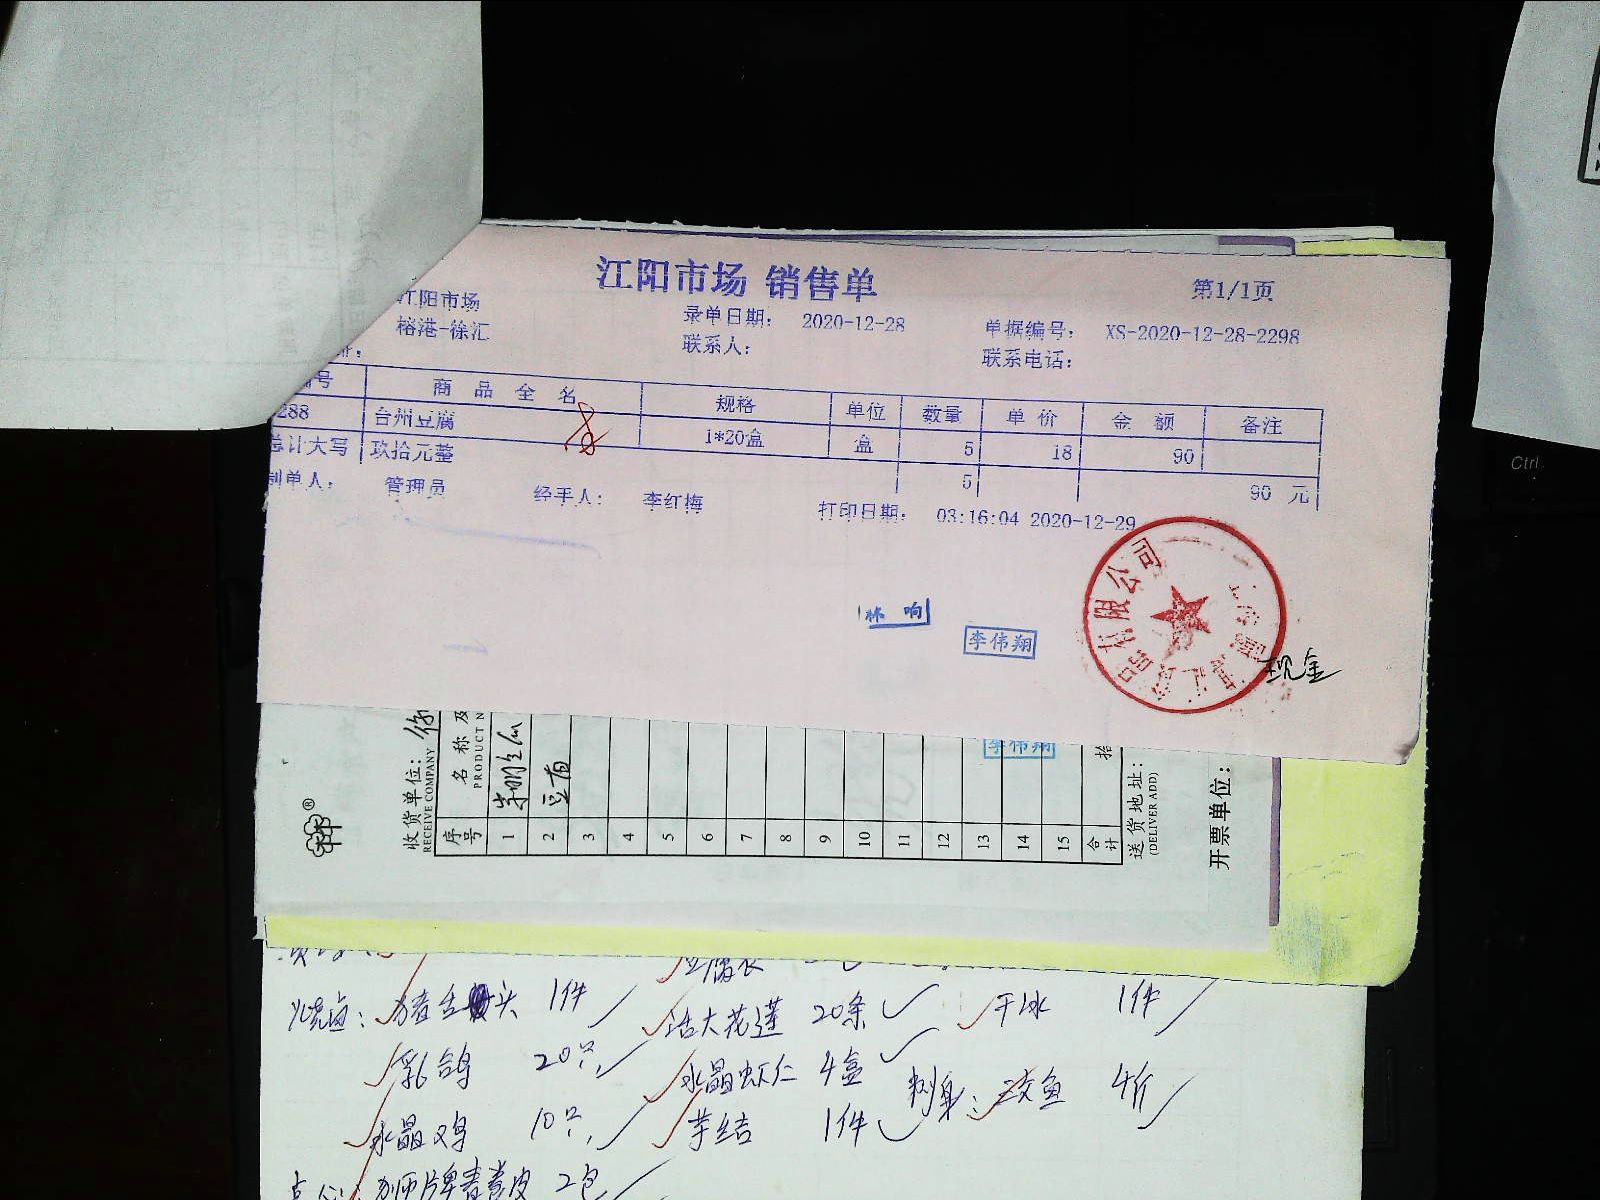 江阳市场 销售单
第1/1页
江阳市场
录单日期： 2020-12-28
单据编号： XS-2020-12-28-2298
榕港-徐汇
联系人：
联系电话：
编号 商品全名 规格 单位 数量 单价 金额 备注
288 台州豆腐 1*20盒 盒 5 18 90
总计大写 玖拾元整 5 90 元
制单人： 管理员 经手人： 李红梅 打印日期： 03:16:04 2020-12-29
林响
李伟翔
有限公司
现金
李伟翔
收货单位：
RECEIVE COMPANY
序号 名称及
PRODUCT N
1
2 豆苗
3
4
5
6
7
8
9
10
11
12
13
14
15
合计 拾
送货地址：
(DELIVER ADD)
开票单位：
豆腐衣
烧卤： 猪舌头 1件 活大花莲 20条 干冰 1件
乳鸽 20只 水晶虾仁 4盒 刺身： 文鱼 4介
水晶鸡 10只 芋结 1件
点心： 狮牌春卷皮 2包
Ctrl